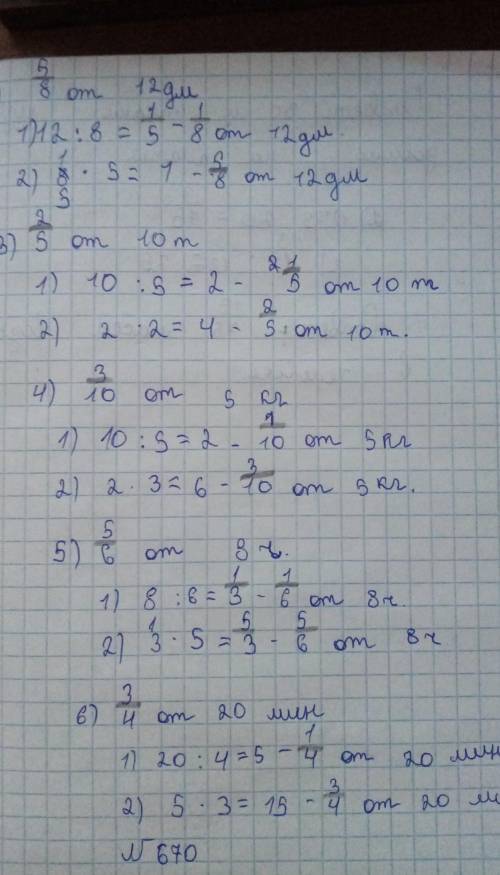 5/8 от 12дм
1) 12 : 8 = 1/5 - 1/8 от 12дм.
2) 1/5 · 5 = 1 - 5/8 от 12дм
3) 2/5 от 10 т
1) 10 : 5 = 2 - 1/5 от 10 т
2) 2 · 2 = 4 - 2/5 от 10 т.
4) 3/10 от 5 кг
1) 10 : 5 = 2 - 1/10 от 5 кг
2) 2 · 3 = 6 - 3/10 от 5 кг.
5) 5/6 от 8 ч.
1) 8 : 6 = 1/3 - 1/6 от 8ч.
2) 1/3 · 5 = 5/3 - 5/6 от 8ч
6) 3/4 от 20 мин
1) 20 : 4 = 5 - 1/4 от 20 мин
2) 5 · 3 = 15 - 3/4 от 20 м
№670